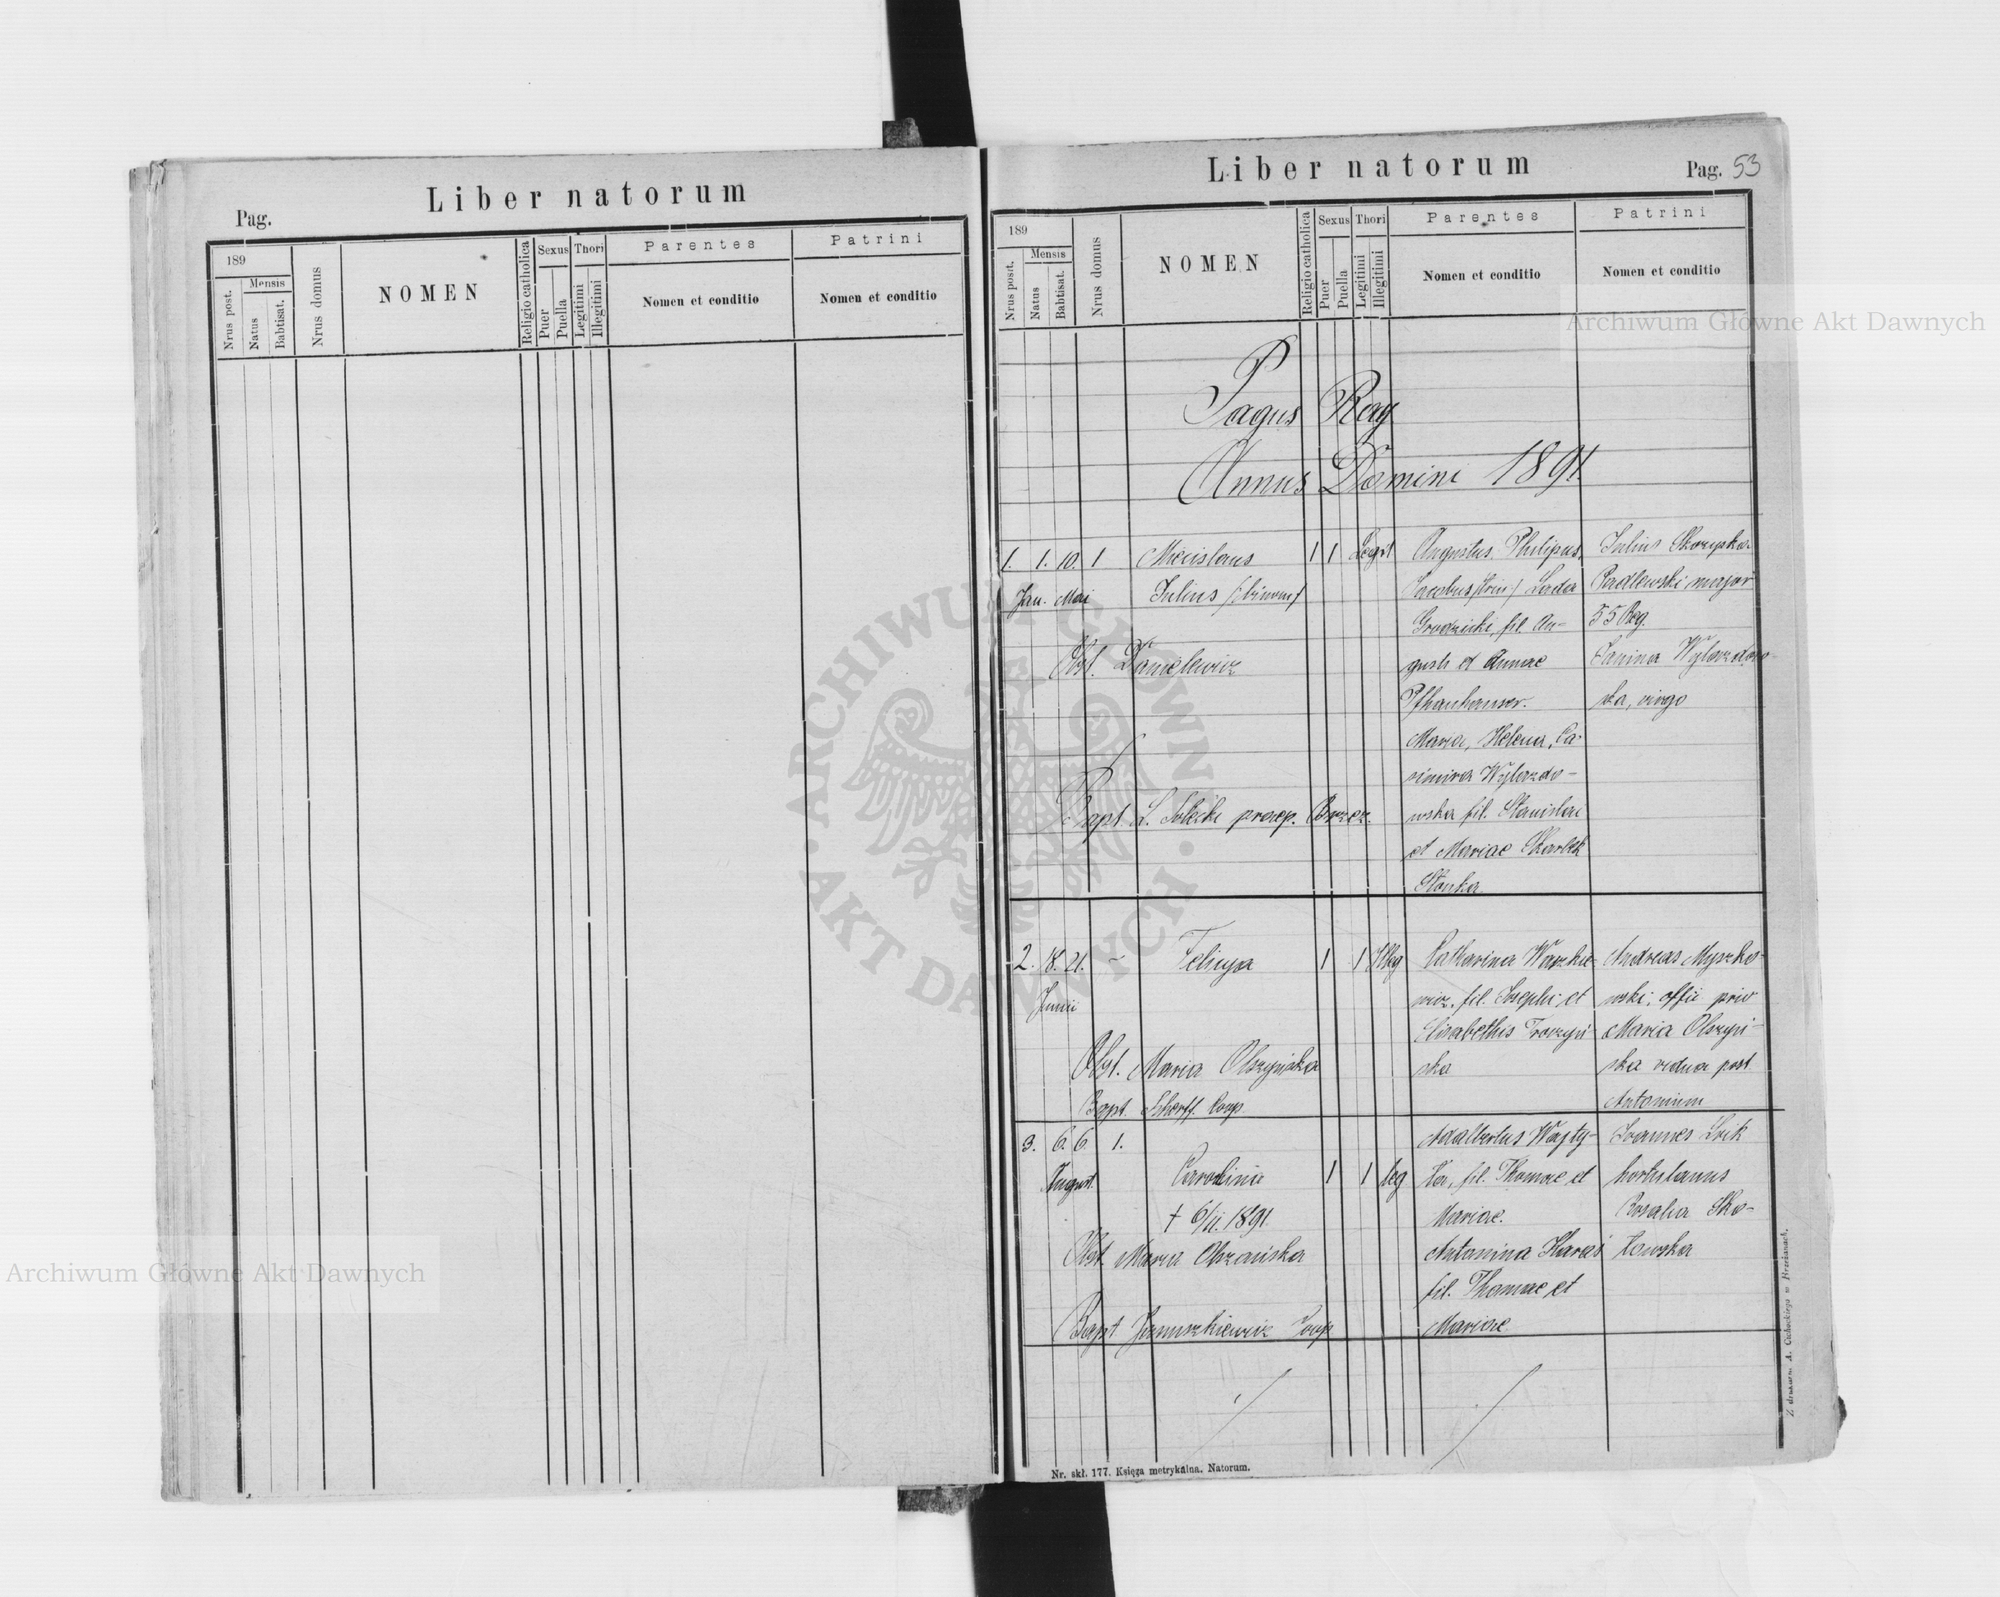 Liber natorum
Pag.
189
Mensis
Nrus post.
Natus
Babtisat.
Nrus domus
NOMEN
Religio catholica
Sexus
Puer
Puella
Thori
Legitimi
Illegitimi
Parentes
Nomen et conditio
Patrini
Nomen et conditio
Liber natorum
Pag. 53
189
Mensis
Nrus posit.
Natus
Babtisat.
Nrus domus
NOMEN
Religio catholica
Sexus
Puer
Puella
Thori
Legitimi
Illegitimi
Parentes
Nomen et conditio
Patrini
Nomen et conditio
Pagus Ray
Annus Domini 1891.
1. 1. 10. 1 Miecislaus 1 1 Legit
Jan. Mai Julius /binom/
Obst. Danielewicz
Bapt L. Solecki praep. Brzez.
Augustus Philipus
Jacobus /trin/ Lada
Grodzicki, fil. Au-
gusti et Annae
Pfhanhauser.
Maria, Helena, Ca-
simira Wyłazdo-
wska fil. Stanislai
et Mariae Skarbek
Słonka
Julius Skorupka
Padlewski major
55 Reg.
Janina Wyłazdow-
ska, virgo
2. 18. 21. - Felicya 1 1 Illeg
Junii
Obst. Maria Olszyńska
Bapt. Scherff Coop.
Catharina Waszkie-
wicz, fil. Josephi et
Elisabethis Troczyń-
ska
Andreas Myszko-
wski, offic priv
Maria Olszyń-
ska vidua post
Antonium
3. 6. 6. 1.
August. Carolina 1 1 leg
+ 6/11. 1891.
Obst. Maria Olszańska
Bapt Januszkiewicz Coop
Adalbertus Wojty-
ła, fil. Thomae et
Mariae.
Antonina Haraś
fil. Thomae et
Mariae.
Joannes Loik
hortulanus
Rosalia Sko-
łowska
Nr. skł. 177. Księga metrykalna. Natorum.
Z drukarni A. Cichockiego w Brzeżanach.
Archiwum Główne Akt Dawnych
Archiwum Główne Akt Dawnych
ARCHIWUM GŁÓWNE
AKT DAWNYCH